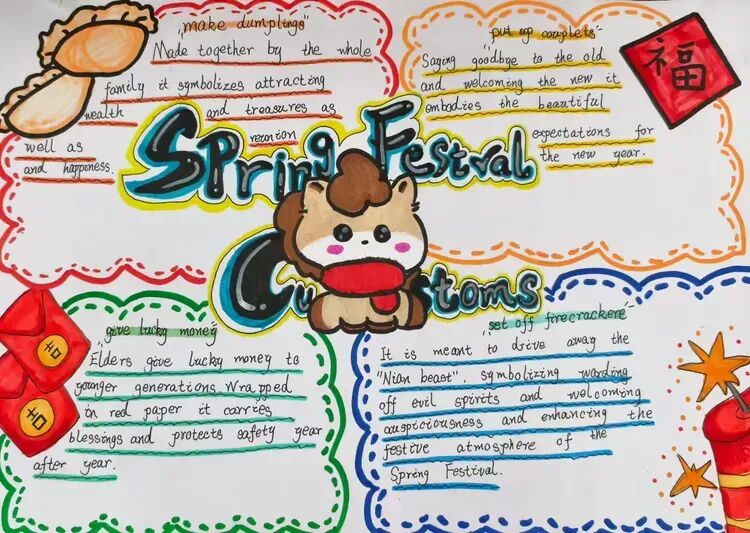 "make dumplings"
Made together by the whole
family it symbolizes attracting
wealth and treasures as
well as reunion
and happiness.
"put up couplets"
Saying goodbge to the old
and welcoming the new it
embodies the beautiful
expectations for
the new year.
福
Spring Festval
Cu stoms
"give lucky money"
Elders give lucky money to
younger generations. Wrapped
in red paper it carries
blessings and protects safety year
after year.
"set off firecrackere"
It is meant to drive away the
"Nian beast". symbolizing warding
off evil spirits and welcoming
auspiciousness and enhancing the
festive atmosphere of the
Spring Festival.